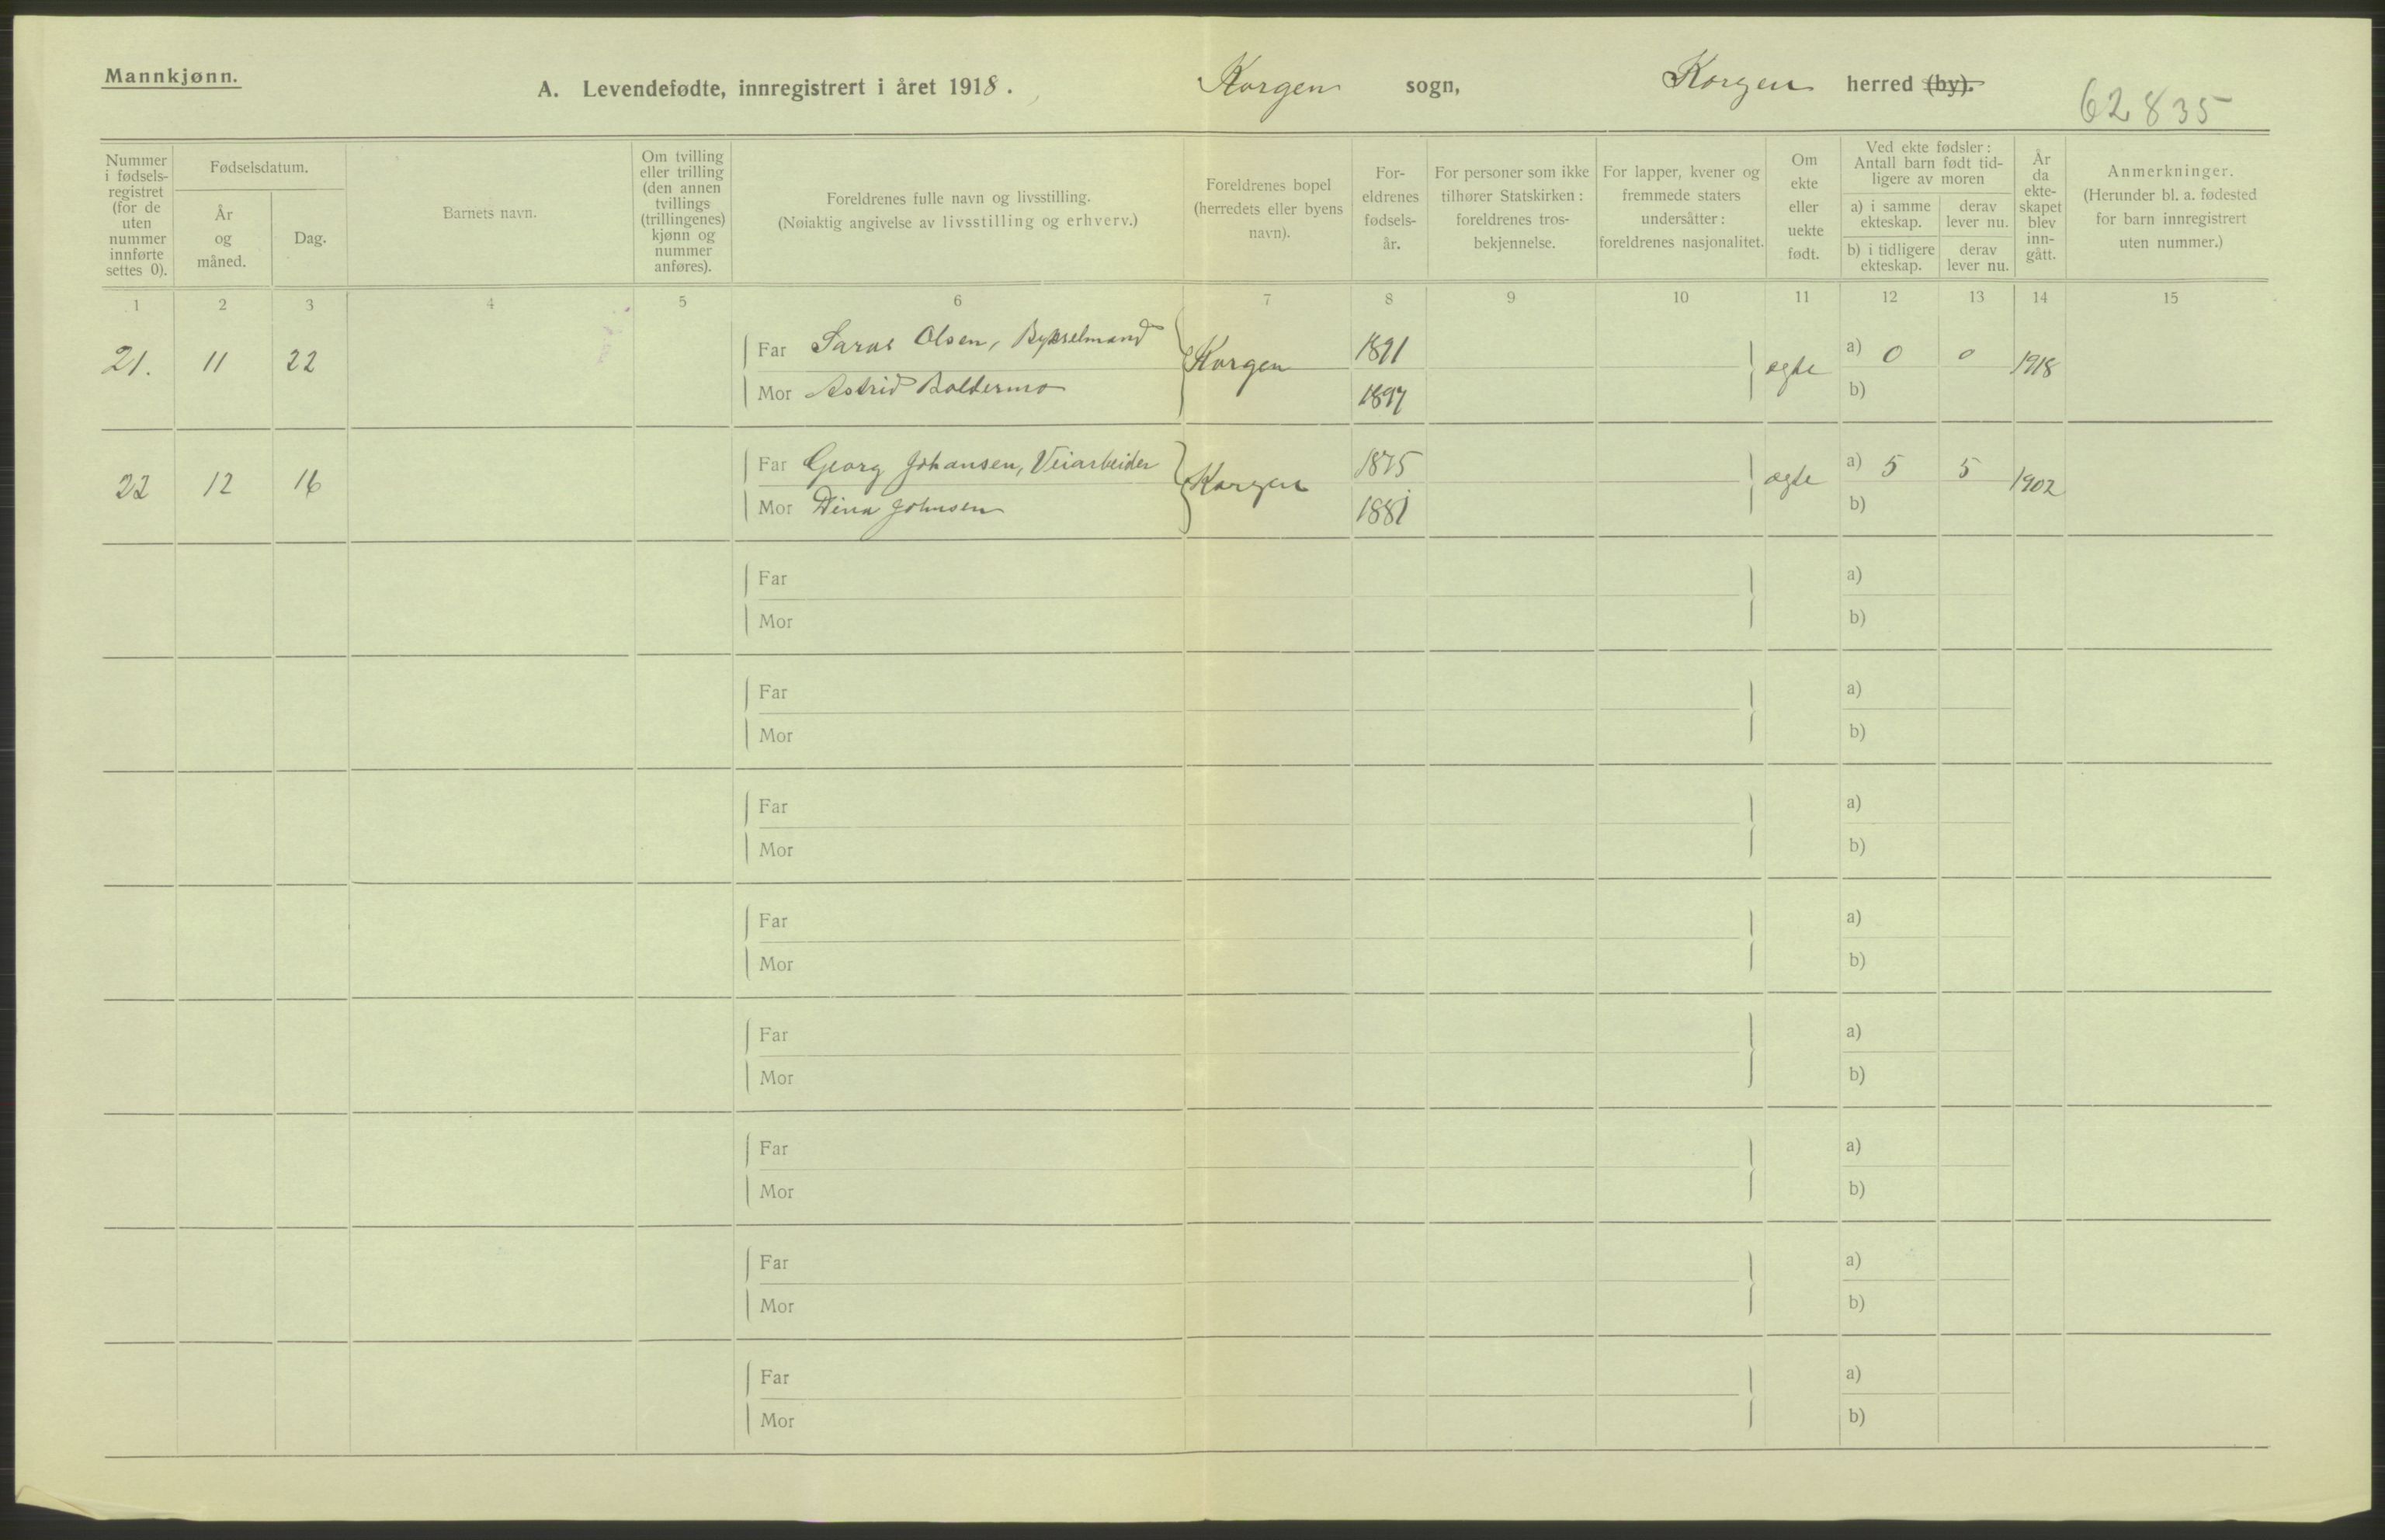 Mannkjønn.
A. Levendefødte, innregistrert i året 1918. Korgen sogn, Korgen herred (by).
62835
Nummer i fødsels-registret (for de uten nummer innførte settes 0).
Fødselsdatum.
År og måned.
Dag.
Barnets navn.
Om tvilling eller trilling (den annen tvillings (trillingenes) kjønn og nummer anføres).
Foreldrenes fulle navn og livsstilling.
(Nøiaktig angivelse av livsstilling og erhverv.)
Foreldrenes bopel (herredets eller byens navn).
For-eldrenes fødsels-år.
For personer som ikke tilhører Statskirken: foreldrenes tros-bekjennelse.
For lapper, kvener og fremmede staters undersåtter: foreldrenes nasjonalitet.
Om ekte eller uekte født.
Ved ekte fødsler: Antall barn født tid-ligere av moren
a) i samme ekteskap.
derav lever nu.
b) i tidligere ekteskap.
derav lever nu.
År da ekte-skapet blev inn-gått.
Anmerkninger.
(Herunder bl. a. fødested for barn innregistrert uten nummer.)
1 2 3 4 5 6 7 8 9 10 11 12 13 14 15
21. 11 22 Far Olsen, Bykselmand Korgen 1891 ægte a) 0 0 1918
Mor Astrid Boldermo 1897 b)
22 12 16 Far Georg Johansen, Veiarbeider Korgen 1875 ægte a) 5 5 1902
Mor Dina Johnsen 1881 b)
Far a)
Mor b)
Far a)
Mor b)
Far a)
Mor b)
Far a)
Mor b)
Far a)
Mor b)
Far a)
Mor b)
Far a)
Mor b)
Far a)
Mor b)